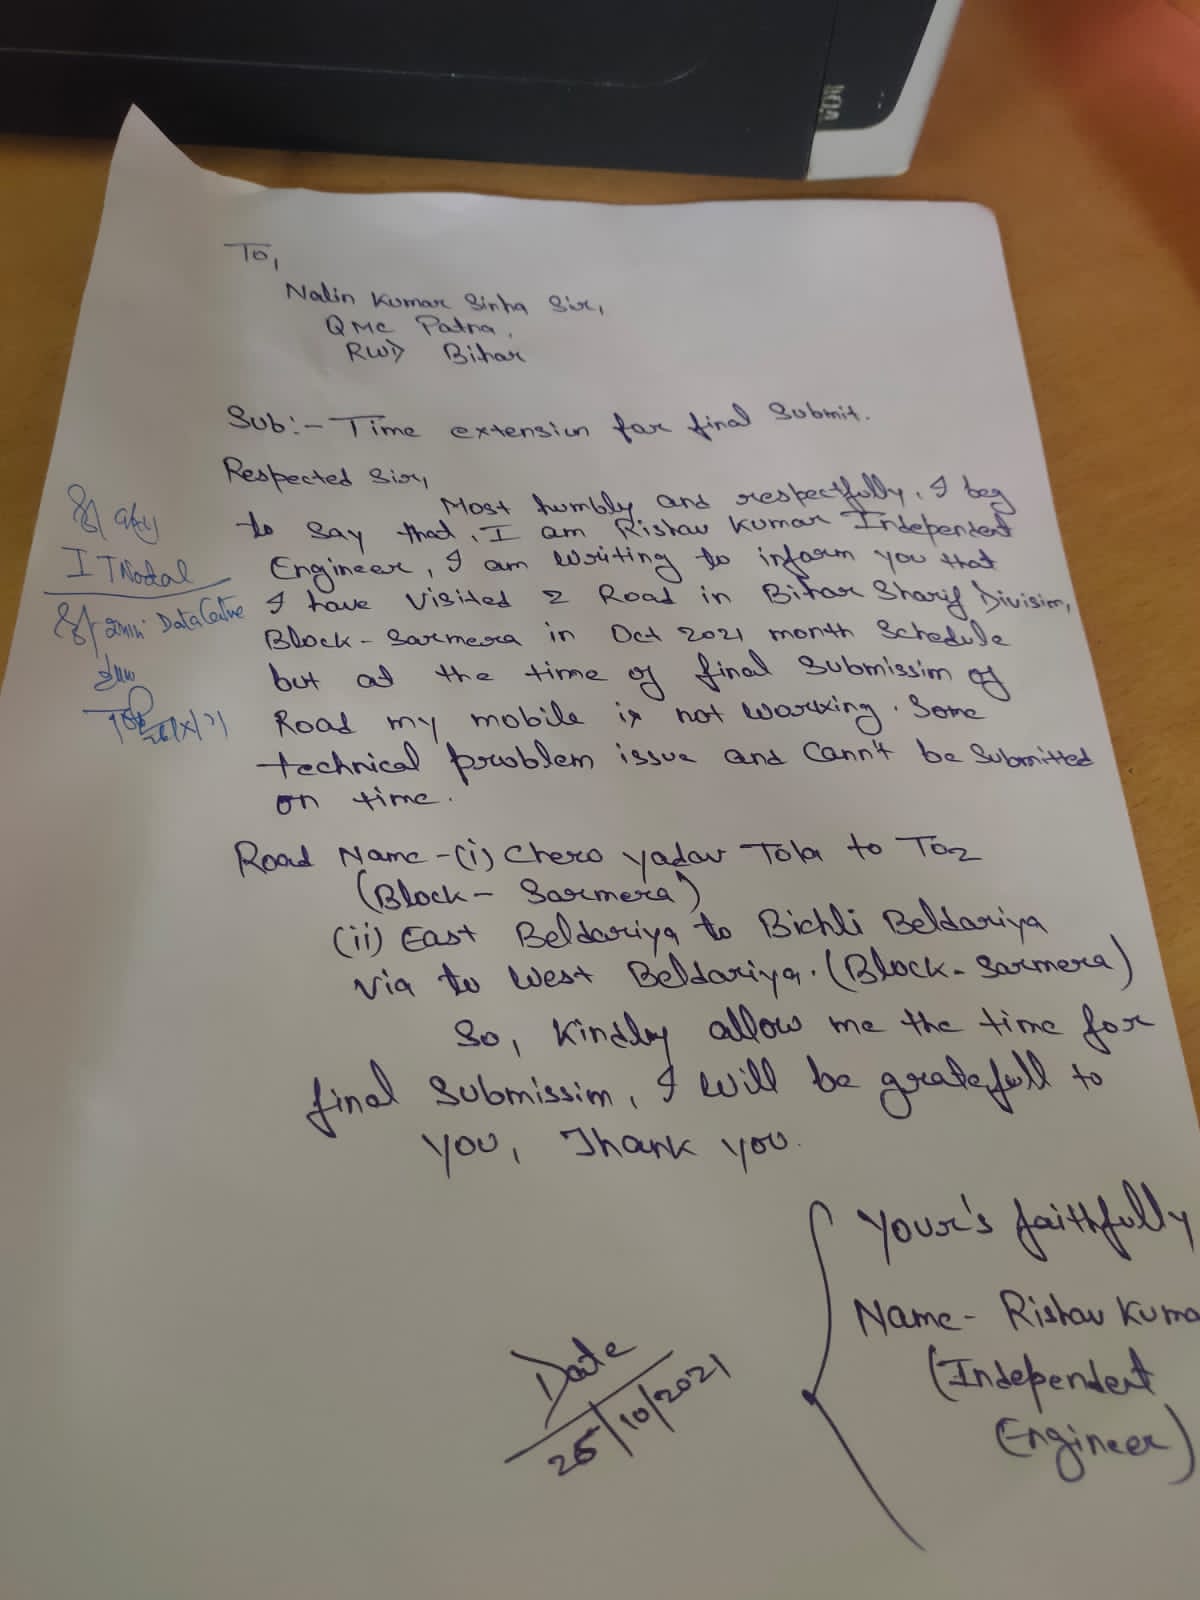 To,
Nalin Kumar Sinha Sir,
QMC Patna,
RWD Bihar
Sub:- Time extension for final Submit.
Respected Sir,
Most humbly and respectfully, I beg
to say that, I am Rishav Kumar Independent
Engineer, I am writing to inform you that
I have visited 2 Road in Bihar Sharif Division,
Block - Sarmera in Oct 2021 month Schedule
but at the time of final Submission of
Road my mobile is not working. Some
technical problem issue and Cann't be Submitted
on time.
Road Name -(i) Chero yadav Tola to To2
(Block - Sarmera)
(ii) East Beldariya to Bichli Beldariya
via to West Beldariya. (Block - Sarmera)
So, Kindly allow me the time for
final Submission, I will be gratefull to
you, Thank you.
Your's faithfully
Name - Rishav Kuma
(Independent
Engineer)
Date
25/10/2021
IT Nodal
Data Centre